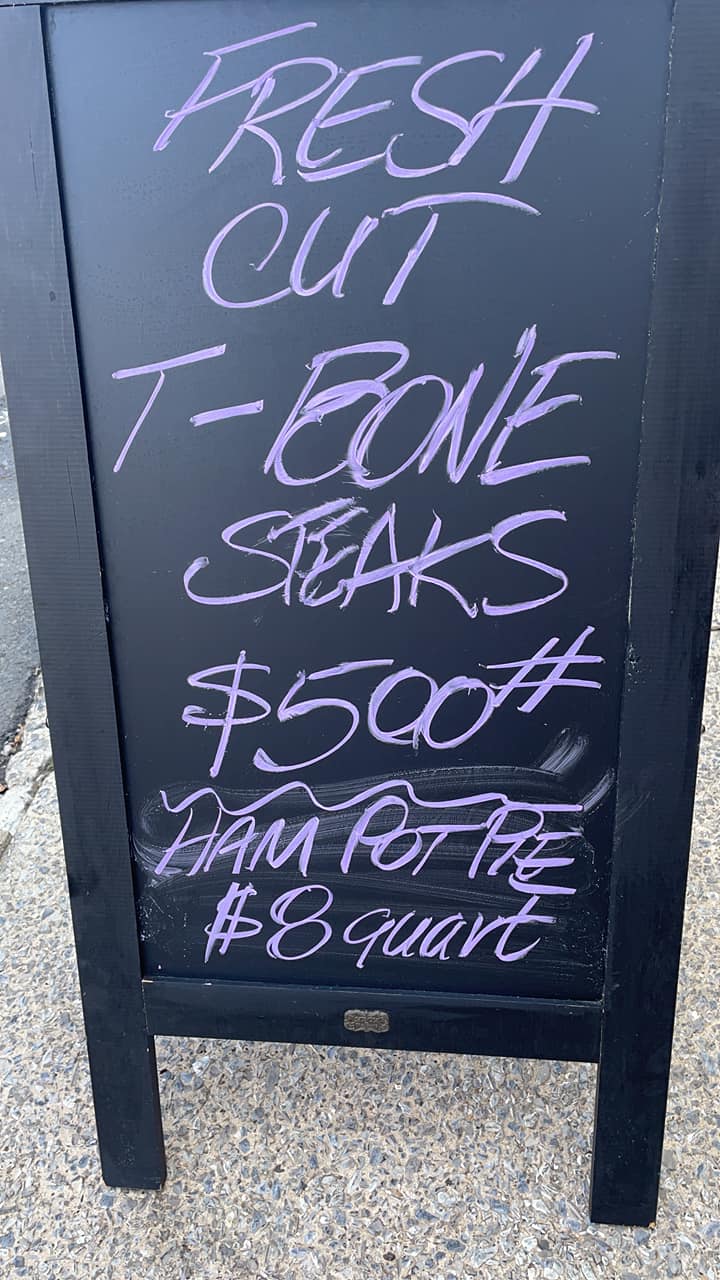 FRESH
CUT
T-BONE
STEAKS
$500#
HAM POT PIE
$8 quart